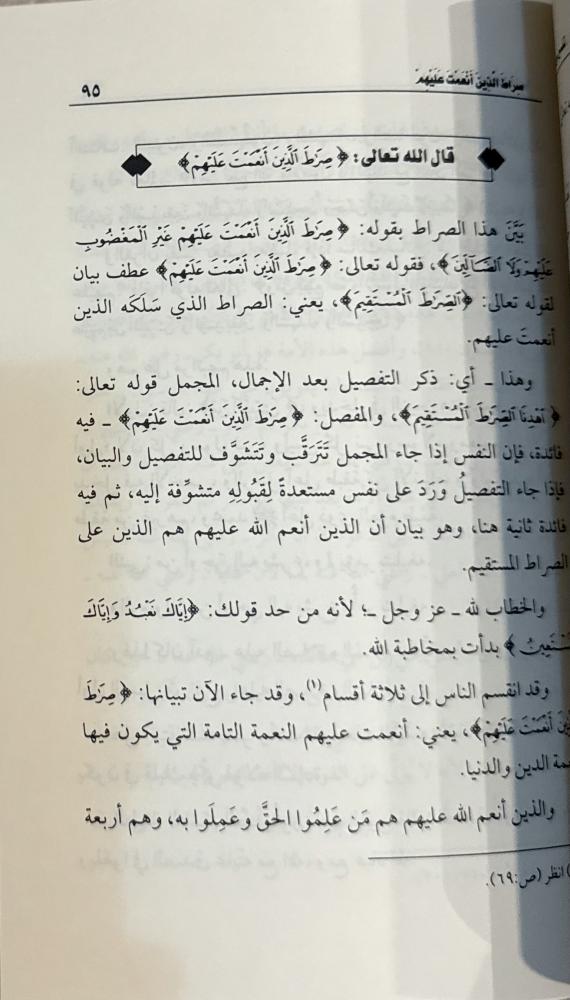 صِرَاطَ الَّذِينَ أَنْعَمْتَ عَلَيْهِمْ
٩٥
قال الله تعالى: ﴿صِرَٰطَ ٱلَّذِينَ أَنْعَمْتَ عَلَيْهِمْ﴾
بَيَّنَ هذا الصراط بقوله: ﴿صِرَٰطَ ٱلَّذِينَ أَنْعَمْتَ عَلَيْهِمْ غَيْرِ ٱلْمَغْضُوبِ
عَلَيْهِمْ وَلَا ٱلضَّآلِّينَ﴾، فقوله تعالى: ﴿صِرَٰطَ ٱلَّذِينَ أَنْعَمْتَ عَلَيْهِمْ﴾ عطف بيان
لقوله تعالى: ﴿ٱلصِّرَٰطَ ٱلْمُسْتَقِيمَ﴾، يعني: الصراط الذي سَلَكَه الذين
أنعمتَ عليهم.
وهذا ـ أي: ذكر التفصيل بعد الإجمال، المجمل قوله تعالى:
﴿ٱهْدِنَا ٱلصِّرَٰطَ ٱلْمُسْتَقِيمَ﴾، والمفصل: ﴿صِرَٰطَ ٱلَّذِينَ أَنْعَمْتَ عَلَيْهِمْ﴾ ـ فيه
فائدة، فإن النفس إذا جاء المجمل تَتَرَقَّب وتَتَشَوَّف للتفصيل والبيان،
فإذا جاء التفصيلُ وَرَدَ على نفس مستعدةً لِقَبُولِهِ متشوِّفة إليه، ثم فيه
فائدة ثانية هنا، وهو بيان أن الذين أنعم الله عليهم هم الذين على
الصراط المستقيم.
والخطاب لله ـ عز وجل ـ؛ لأنه من حد قولك: ﴿إِيَّاكَ نَعْبُدُ وَإِيَّاكَ
نَسْتَعِينُ﴾ بدأت بمخاطبة الله.
وقد انقسم الناس إلى ثلاثة أقسام(١)، وقد جاء الآن تبيانها: ﴿صِرَٰطَ
أَنْعَمْتَ عَلَيْهِمْ﴾، يعني: أنعمت عليهم النعمة التامة التي يكون فيها
الدين والدنيا.
والذين أنعم الله عليهم هم مَن عَلِمُوا الحَقَّ وعَمِلُوا به، وهم أربعة
) انظر (ص:٦٩).